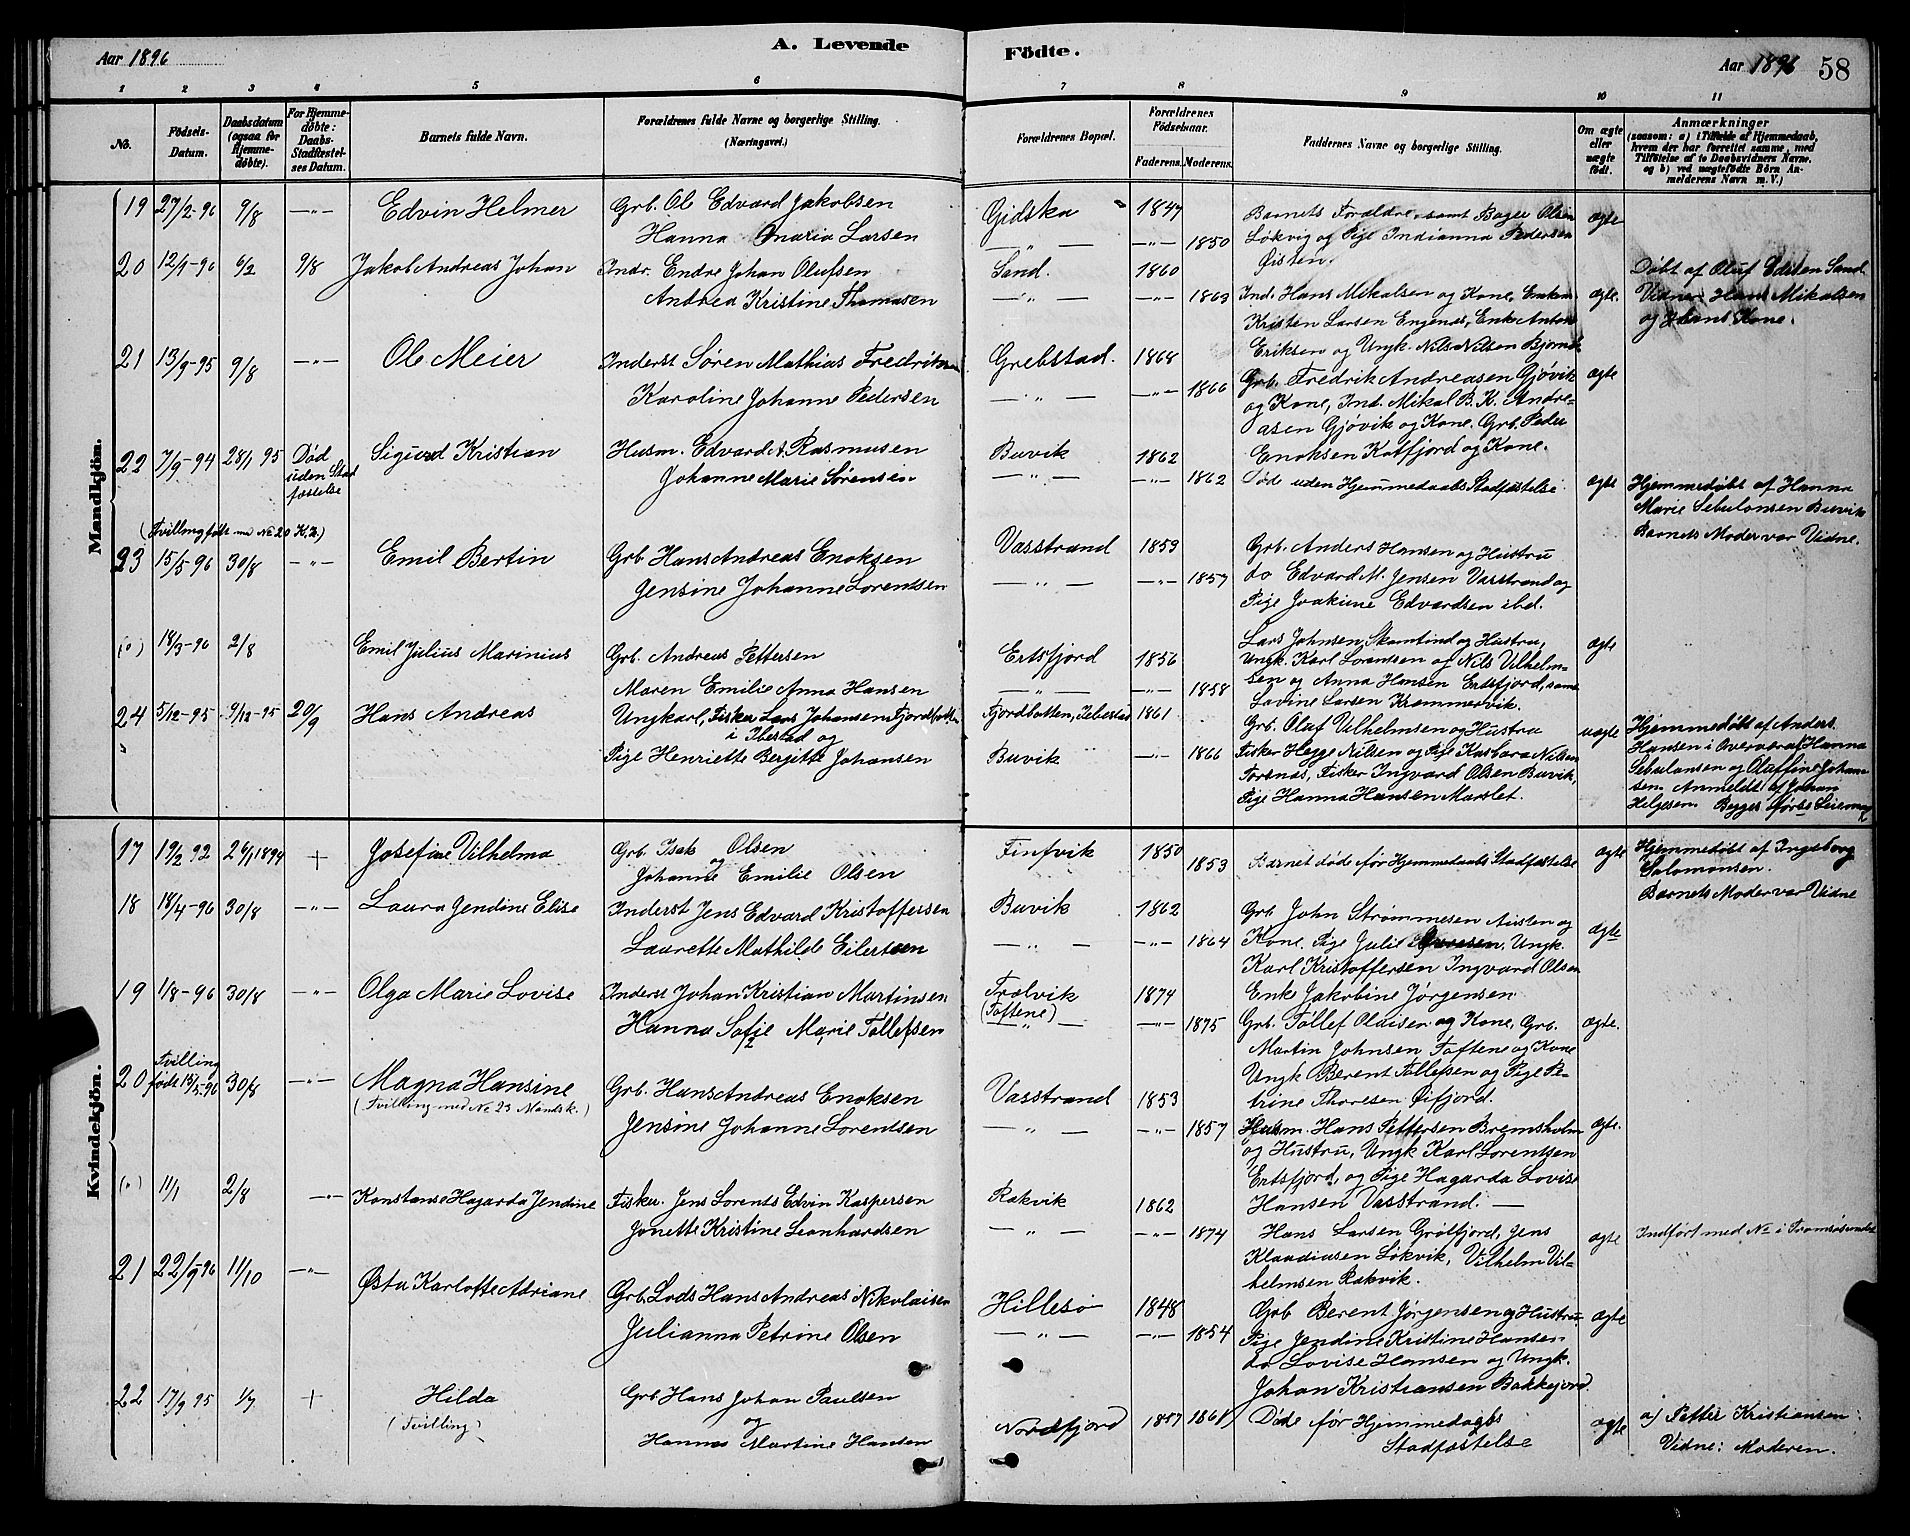 Aar 1896
A. Levende
Födte.
Aar 1896
58
1 2 3 4 5 6 7 8 9 10 11
No.
Födsels-Datum.
Daabsdatum (ogsaa för Hjemmedöbte).
For Hjemmedöbte: Daabs-Stadfæstelses Datum.
Barnets fulde Navn.
Forældrenes fulde Navne og borgerlige Stilling.
(Næringsvei.)
Forældrenes Bopæl.
Forældrenes Födselsaar.
Faderens. Moderens.
Faddernes Navne og borgerlige Stilling.
Om ægte eller uægte födt.
Anmærkninger
(saasom: a) i Tilfælde af Hjemmedaab,
hvem der har forrettet samme, med
Tilföielse af to Daabsvidners Navne.
og b) ved uægtefödte Börn Anmelderens Navn m. V.)
Mandkjön.
19 27/2-96 9/8 —"— Edvin Helmer Grb. Ole Edvard Jakobsen Gidska 1847 Barnets Forældre, samt Bager Olsen ægte
Hanna Maria Larsen —"— —"— 1850 Løkvig og Pige Indianna Pedersen
Øisten.
20 12/1-96 6/2 9/8 Jakob Andreas Johan Indr. Endre Johan Olufsen Sand. 1860 Døbt af Oluf Edisen Sand.
Andrea Kristine Thomasen —"— —"— 1863 Ind. Hans Mikalsen og Kone, ægte. Vidner: Hans Mikalsen
Kristen Larsen Engenæs, Enke Anton og Hans Kone.
21 13/9-95 9/8 —"— Ole Meier Inderst Søren Mathias Fredriksen Grebstad. 1868 Eriksen og Ungk. Nils Nilsen
Karoline Johanne Pedersen —"— —"— 1866 Grb. Fredrik Andreasen Gjøvik ægte
og Kone, Ind. Mikal B. K. Andre-
asen Gjøvik og Kone. Grb. Peder
22 7/9-94 28/1 95 Død uden Stadfæstelse Sigurd Kristian Husm. Edvard A. Rasmusen Buvik 1862 Enoksen Katfjord og Kone.
Johanne Marie Sørensen —"— —"— 1862 Døde uden Hjemmedaabs Stadfæstelse ægte Hjemmedøbt af Hanna
Marie Sebulonsen Buvik
(Tvilling født med No 20 K.K.) Barnets Moder var Vidne.
23 15/5-96 30/8 —"— Emil Bertin Grb. Hans Andreas Enoksen Vasstrand 1859 Grb. Anders Hansen og Hustru
Jensine Johanne Lorentsen —"— —"— 1857 do Edvard M. Jensen Vasstrand og
Pige Joakime Edvardsen ibd.
(0) 18/3-96 2/8 Emil Julius Marinius Grb. Andreas Pettersen Ertsfjord 1856 Lars Johnsen, Skamtind og Hustru, ægte
Ungk. Karl Lorentsen og Nils Vilhelm-
Maren Emilie Anna Hansen —"— —"— 1858 sen og Anna Hansen Ertsfjord, samt
Lovine Larsen Kræmmervik.
24 5/12-95 9/12-95 20/9 Hans Andreas Ungkarl, Fisker Lars Johansen, Fjordbotten Fjordbotten, Ibestad 1861 Grb. Oluf Vilhelmsen og Hustru uægte Hjemmedøbt af Anders
i Ibestad og Hansen i Overvær af Hanna
Pige Henriette Bergitte Johansen Buvik —"— 1866 Fisker Hegge Nilsen og Pige Karbara Nilsen Sebulonsen og Oluffine Johan-
Torsnæs, Fisker Ingvard Olsen Buvik, sen. Anmeldt af Johan
Pige Hanna Hansen Marslet. Helgesen. Begges første Leiermaal
Kvindekjön.
17 19/2 92 26/1 1894 + Josefine Vilhelma Grb. Isak Olsen Finfvik 1850 Barnet døde før Hjemmedaabs Stadfæstelse ægte Hjemmedøbt af Ingeborg
og Johanne Emilie Olsen 1853 Salomonsen.
Barnets Moder var Vidne
18 18/4-96 30/8 —"— Laura Jendine Elise Inderst Jens Edvard Kristoffersen Buvik 1862 Grb. John Strømmesen Austen og ægte
Laurette Mathilde Eilertsen —"— —"— 1864 Kone. Pige Julie Ungk.
Karl Kristoffersen Ingvard Olsen
19 1/8-96 30/8 —"— Olga Marie Lovise Inderst Johan Kristian Martinsen Trælvik (Toftene) 1874 Enke Jakobine Jørgensen
Hanna Sofie Marie Tollefsen —"— —"— 1875 Grb. Tollef Olaisen og Kone, Grb. ægte.
Martin Johnsen Toftene og Kone
20 Tvilling født 15/5-96 30/8 —"— Magna Hansine Grb. Hans Andreas Enoksen Vasstrand 1853 Ungk Berent Tollefsen og Pige Pe-
(Tvilling med No 23 Mandsk.) trine Thoresen Øifjord.
Jensine Johanne Lorentsen —"— —"— 1857 Husm. Hans Pettersen Bremsholm ægte.
og Hustru, Ungk Karl Lorentsen
Ertsfjord, og Pige Hagarda Lovise
(0) 11/1 2/8 —"— Konstanse Hagarda Jendine Fisker. Jens Lorents Edvin Kaspersen Rakvik 1862 Hansen Vasstrand. —
Jonette Kristine Leonhardsen —"— —"— 1874 Hans Larsen Grøtfjord, Jens ægte Indført med No i Tromsøsundet
Klaudiusen Løkvik, Vilhelm Vil-
helmsen Rakvik.
21 22/9-96 11/10 —"— Østa Karlotte Adriane Grb. Lods Hans Andreas Nikolaisen Hillesø 1848 Grb Berent Jørgensen og Hustru ægte
Julianna Petrine Olsen —"— —"— 1854 Pige Jendine Kristine Hansen
do Lovise Hansen og Ungk.
Johan Kristiansen Bakkejord.
22 17/9 95 1/7 + Hilda (Tvilling) Grb. Hans Johan Paulsen Nordfjord 1857 1861 Døde før Hjemmedaabs ægte a) Petter Kristiansen
og Hanna Martine Hansen Stadfæstelse Vidne: Moderen.